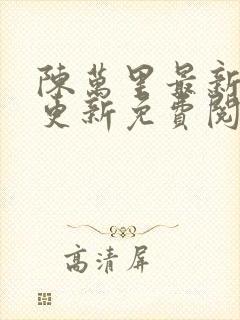 陳萬里最新
更新免費閱
高清屏